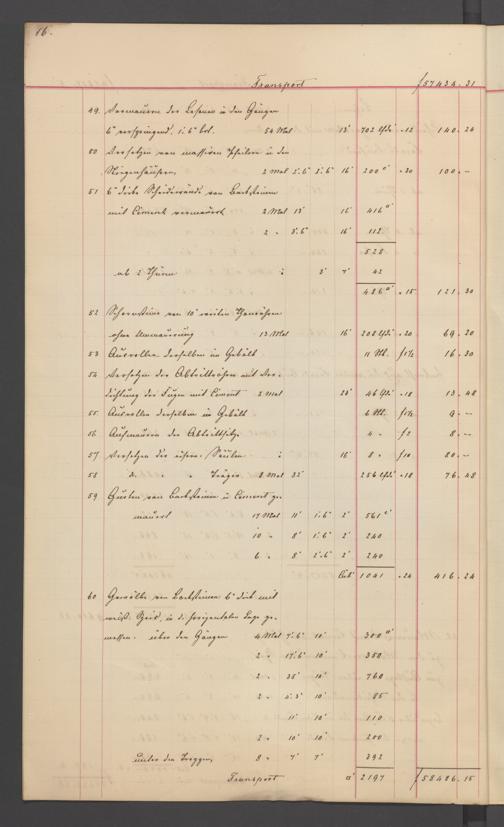 86.
Transport f 57434.31
49 Vermauern der Lesenen in den Gängen
6" vorspringend, 1.6" br. 54 Mal 13' 702 lfds' -.12 140.24
50 Versetzen von massiven Pfeilern in den
Stiegenhäusern, 2 Mal 16' 200 -.30 100.-
51 6" dicke Scheidewände von Backsteinen
mit Cement vermauert 2 Mal 13' 16' 416
2 " 16' 112
528
ab 2 Thüren 2 3' 7' 42
486 -.15 121.30
52 Schornsteine von 10" weiten Thonröhren
ohne Ummauerung 13 Mal 16' 208 lfds' -.20 69.20
53 Ausrollen derselben im Gebälk 11 Stk. f 1½ 16.30
54 Versetzen der Abtrittröhren mit Ver-
dichtung der Fugen mit Cement 2 Mal 23' 46 lfds' -.18 13.48
55 Ausrollen derselben im Gebälk 6 Stk. f 1½ 9.-
56 Aufmauern der Abtrittsitze 4 " f 2 8.-
57 Versetzen der eisern. Säulen 16' 8 " f 10 80.-
58 d. " " Träger 8 Mal 32' 256 lfds' -.18 76.48
59 Gurten von Backsteinen in Cement ge-
mauert 17 Mal 11' 1.6" 2' 561
10 " 8' 1.6" 2' 240
6 " 8' 2.6" 2' 240
Cub' 1041 -.24 416.24
60 Gewölbe von Backsteinen 6" dick mit
in d. horizontalen Lage ge-
messen. über den Gängen 4 Mal 7.6" 10' 300
2 " 17.6" 10' 350
2 " 38' 10' 760
2 " 4.3" 10' 85
11' 10' 110
2 " 10' 10' 200
unter den Treppen, 8 " 7' 7' 392
Transport 2197 f 58486.15